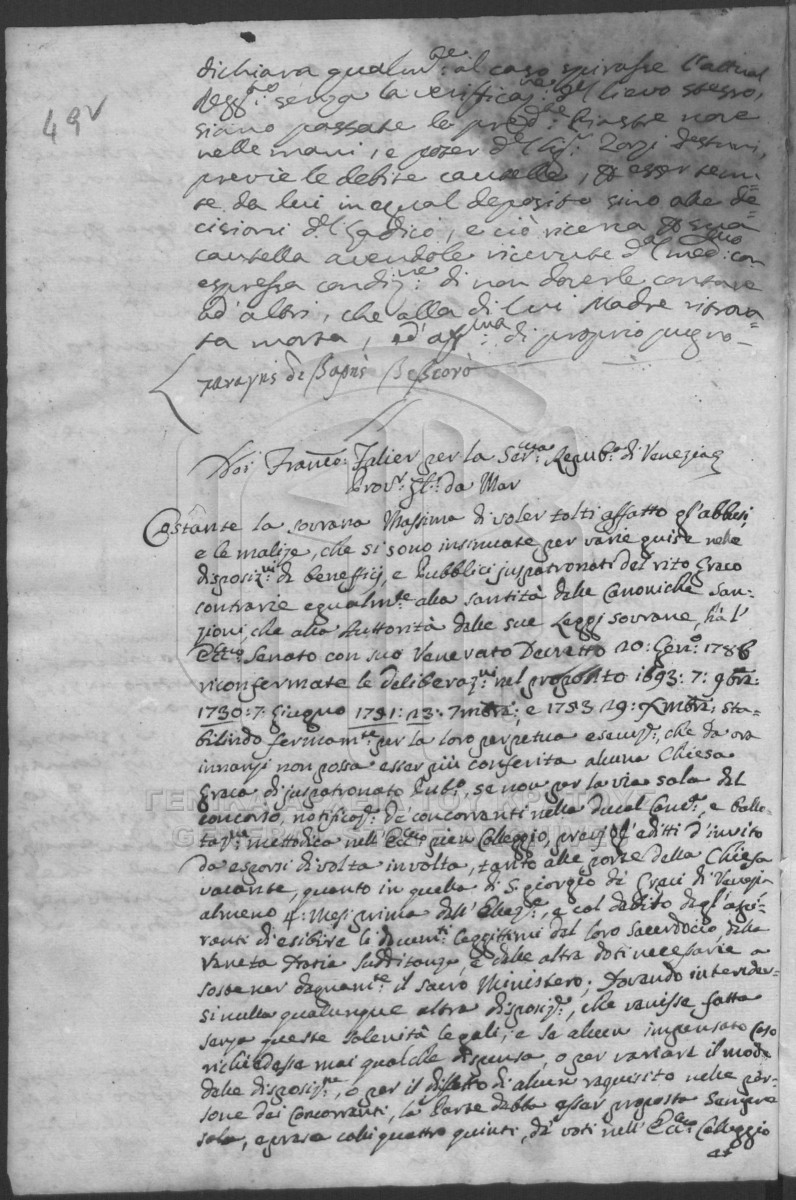 49v
dichiara qualm:te al caso spirasse l'attual
Regg:to senza la verificaz:ne del lievo stesso,
siano passate le pred:te Piastre nove
nelle mani, e poter d'esso Sig:r Zorzi
previe le debite cautelle, per esser tenu=
te da lui in egual deposito sino alle de=
cisioni del Giudice, e ciò ricerca per sua
cautella avendole ricevute dal med:mo con
espressa condiz:ne di non doverle contare
ad altri, che alla di lui Madre ritrova=
ta morta, ed aff:ma di proprio pugno
Noi Franc:o Falier per la Ser:ma Repub:a di Venezia
Prov:r Gl: da Mar
Costante la sovrana Massima di voler tolti affatto gl'abbusi,
e le malizie, che si sono insinuate per varie guise nelle
disposiz:ni di beneffizij, e pubblici juspatronati del rito Greco
contrarie egualm:te alla santità delle Canoniche San=
zioni, che alla Auttorità delle sue Leggi sovrane, hà l'
Ecc:mo Senato con suo Venerato Decretto 20: Gen:o 1786
riconfermate le deliberaz:ni nel proposito 1693: 7: 9bre:
1730: 7: Giugno 1751: 23: 7mbre; e 1753 29: Xmbre; sta=
bilindo fermam:te per la loro perpetua esecuz:e, che da ora
innanzi non possa esser più conferita alcuna Chiesa
Greca di juspatronato Pub:o, se non per la via sola del
concorso, notificaz:e de concorrenti nella Ducal Canc:a, e ballo=
taz:ne mettodica nell'Ecc:mo pien Colleggio, previj gl'editti d'invito
da esporsi di volta in volta, tanto alle porte della Chiesa
vacante, quanto in quella di S: Giorgio dè Greci di Venezia
almeno 4: Mesi prima dell'Elez:e, e col debito degl'aspi=
ranti di esibire li docum:ti leggittimi del loro Sacerdozio, della
Veneta Sudditanza, e delle altre doti necessarie a
sostener degnam:te il sacro Ministero; Dovendo intender=
si nulla qualunque altra disposiz:e, che venisse fatta
senza queste solenità legali, e se alcun impensato caso
richiedesse mai qualche dispensa, o per variare il modo
delle disposiz:ni, o per il difetto di alcun requisito nelle per=
sone dei Concorrenti, la Parte debba esser proposta sempre
sola, e presa colli quattro quinti dè voti nell'Ecc:mo Colleggio